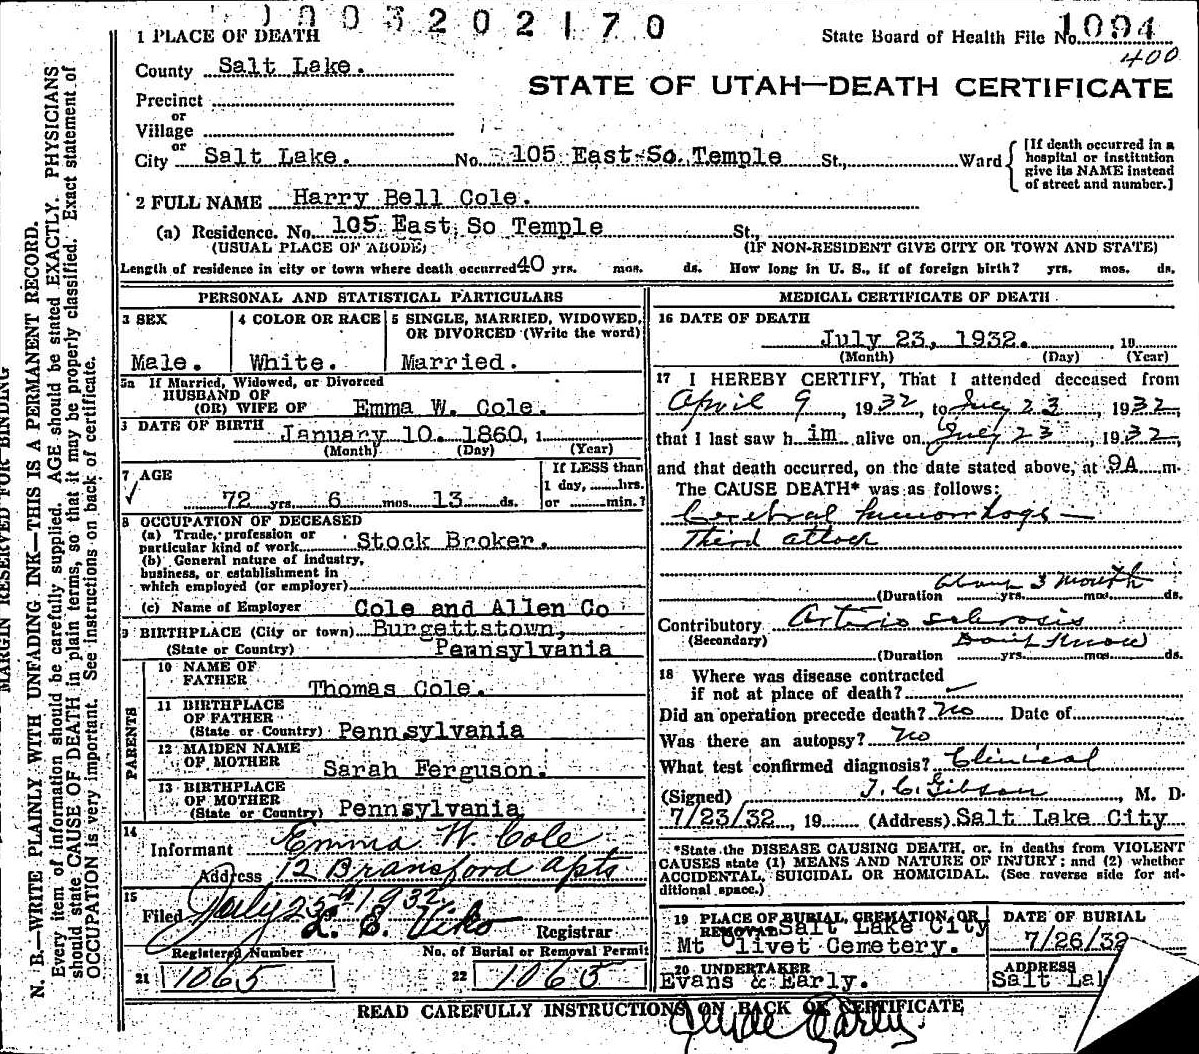 0003202170
1 PLACE OF DEATH
State Board of Health File No. 1094
400
County Salt Lake.
STATE OF UTAH—DEATH CERTIFICATE
Precinct
or
Village
or
City Salt Lake. No. 105 East So. Temple St., Ward
[If death occurred in a hospital or institution give its NAME instead of street and number.]
2 FULL NAME Harry Bell Cole.
(a) Residence. No. 105 East So Temple St.,
(USUAL PLACE OF ABODE) (IF NON-RESIDENT GIVE CITY OR TOWN AND STATE)
Length of residence in city or town where death occurred 40 yrs. mos. ds. How long in U. S., if of foreign birth? yrs. mos. ds.
PERSONAL AND STATISTICAL PARTICULARS
3 SEX
Male.
4 COLOR OR RACE
White.
5 SINGLE, MARRIED, WIDOWED,
OR DIVORCED (Write the word)
Married.
5a If Married, Widowed, or Divorced
HUSBAND OF
(OR) WIFE OF Emma W. Cole.
DATE OF BIRTH January 10. 1860, 1
(Month) (Day) (Year)
7 AGE
72 yrs. 6 mos. 13 ds.
If LESS than
1 day, hrs.
or min.?
8 OCCUPATION OF DECEASED
(a) Trade, profession or
particular kind of work Stock Broker.
(b) General nature of industry,
business, or establishment in
which employed (or employer)
(c) Name of Employer Cole and Allen Co
9 BIRTHPLACE (City or town) Burgettstown,
(State or Country) Pennsylvania
PARENTS
10 NAME OF
FATHER Thomas Cole.
11 BIRTHPLACE
OF FATHER
(State or Country) Pennsylvania
12 MAIDEN NAME
OF MOTHER Sarah Ferguson.
13 BIRTHPLACE
OF MOTHER
(State or Country) Pennsylvania
14
Informant Emma W. Cole
Address 12 Bransford apts
15
Filed July 25 1932
L. E. Viko Registrar
Registered Number
21 1065
No. of Burial or Removal Permit
22 1065
MEDICAL CERTIFICATE OF DEATH
16 DATE OF DEATH
July 23, 1932. 19
(Month) (Day) (Year)
17 I HEREBY CERTIFY, That I attended deceased from
April 9, 1932, to July 23, 1932,
that I last saw him alive on July 23, 1932,
and that death occurred, on the date stated above, at 9A m.
The CAUSE DEATH* was as follows:
Cerebral hemorrhage —
Third attack
about 3 month
(Duration yrs. mos. ds.
Contributory Arterio sclerosis
(Secondary) Don't Know
(Duration yrs. mos. ds.
18 Where was disease contracted
if not at place of death?
Did an operation precede death? No Date of
Was there an autopsy? No
What test confirmed diagnosis? Clinical
(Signed) T. C. Gibson, M. D.
7/23/32, 19 (Address) Salt Lake City
*State the DISEASE CAUSING DEATH, or, in deaths from VIOLENT
CAUSES state (1) MEANS AND NATURE OF INJURY; and (2) whether
ACCIDENTAL, SUICIDAL OR HOMICIDAL. (See reverse side for additional space.)
19 PLACE OF BURIAL, CREMATION, OR
REMOVAL Salt Lake City
Mt Olivet Cemetery.
DATE OF BURIAL
7/26/32
20 UNDERTAKER
Evans & Early.
ADDRESS
Salt Lak
READ CAREFULLY INSTRUCTIONS ON BACK OF CERTIFICATE
Clyde Early
MARGIN RESERVED FOR BINDING
N. B.—WRITE PLAINLY WITH UNFADING INK—THIS IS A PERMANENT RECORD.
Every item of information should be carefully supplied. AGE should be stated EXACTLY. PHYSICIANS
should state CAUSE OF DEATH in plain terms, so that it may be properly classified. Exact statement of
OCCUPATION is very important. See instructions on back of certificate.